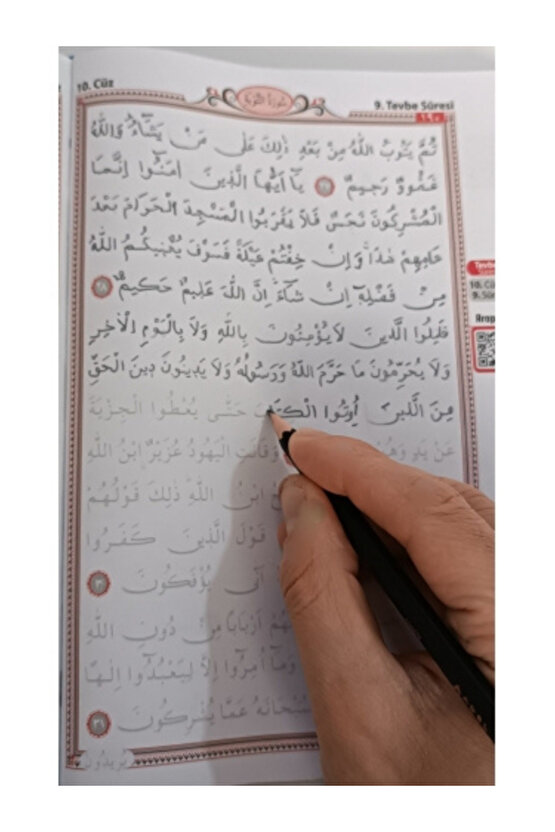 10. Cüz
سورة التوبة
9. Tevbe Sûresi
١٩٠
ثُمَّ يَتُوبُ اللّٰهُ مِنْ بَعْدِ ذٰلِكَ عَلٰى مَنْ يَشَٓاءُ وَاللّٰهُ
غَفُورٌ رَحِيمٌ ﴿٢٧﴾ يَٓا اَيُّهَا الَّذِينَ اٰمَنُٓوا اِنَّمَا
الْمُشْرِكُونَ نَجَسٌ فَلَا يَقْرَبُوا الْمَسْجِدَ الْحَرَامَ بَعْدَ
عَامِهِمْ هٰذَا وَاِنْ خِفْتُمْ عَيْلَةً فَسَوْفَ يُغْنِيكُمُ اللّٰهُ
مِنْ فَضْلِهِٓ اِنْ شَٓاءَ اِنَّ اللّٰهَ عَلِيمٌ حَكِيمٌ ﴿٢٨﴾
قَاتِلُوا الَّذِينَ لَا يُؤْمِنُونَ بِاللّٰهِ وَلَا بِالْيَوْمِ الْاٰخِرِ
وَلَا يُحَرِّمُونَ مَا حَرَّمَ اللّٰهُ وَرَسُولُهُ وَلَا يَدِينُونَ دِينَ الْحَقِّ
مِنَ الَّذِينَ اُوتُوا الْكِتَابَ حَتّٰى يُعْطُوا الْجِزْيَةَ
عَنْ يَدٍ وَهُمْ وَقَالَتِ الْيَهُودُ عُزَيْرٌ ابْنُ اللّٰهِ
ابْنُ اللّٰهِ ذٰلِكَ قَوْلُهُمْ
قَوْلَ الَّذِينَ كَفَرُوا
اَنّٰى يُؤْفَكُونَ ﴿٣٠﴾
اَرْبَابًا مِنْ دُونِ اللّٰهِ
وَمَٓا اُمِرُٓوا اِلَّا لِيَعْبُدُٓوا اِلٰهًا
سُبْحَانَهُ عَمَّا يُشْرِكُونَ ﴿٣١﴾
يُرِيدُونَ